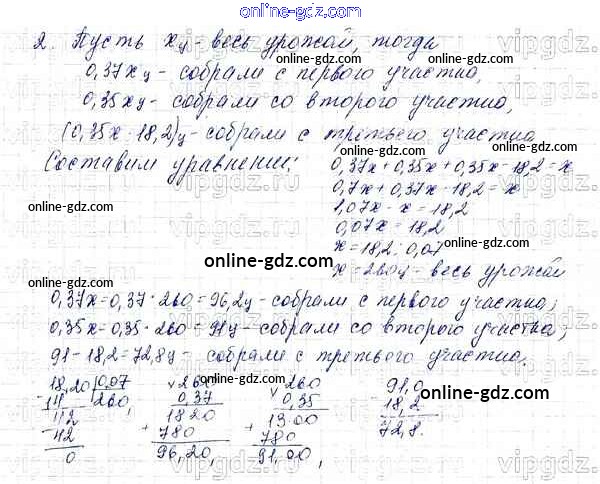 online-gdz.com
2. Пусть x ц - весь урожай, тогда
0,37x ц - собрали с первого участка,
0,35x ц - собрали со второго участка,
(0,35x - 18,2) ц - собрали с третьего участка
Составим уравнение:
0,37x + 0,35x + 0,35x - 18,2 = x
0,7x + 0,37x - 18,2 = x
1,07x - x = 18,2
0,07x = 18,2
x = 18,2 : 0,07
x = 260 ц - весь урожай
0,37x = 0,37 * 260 = 96,2 ц - собрали с первого участка;
0,35x = 0,35 * 260 = 91 ц - собрали со второго участка;
91 - 18,2 = 72,8 ц - собрали с третьего участка.
18,20 | 0,07
- 14 | 260,
42
- 42
0
x 260
0,37
1820
+ 780
96,20,
x 260
0,35
1300
+ 780
91,00,
91,0
- 18,2
72,8.
online-gdz.com
online-gdz.com
online-gdz.com
online-gdz.com
online-gdz.com
online-gdz.com
online-gdz.com
online-gdz.com